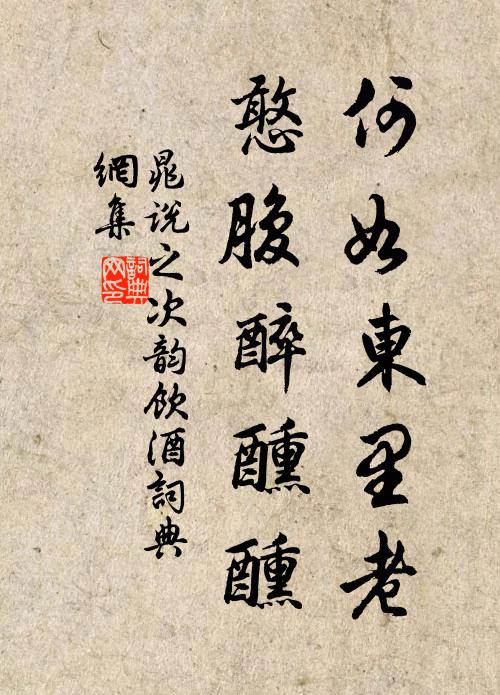 何如東里老
憨腹醉醺醺
晁說之次韵飲酒詞典
網集
詞典
网印